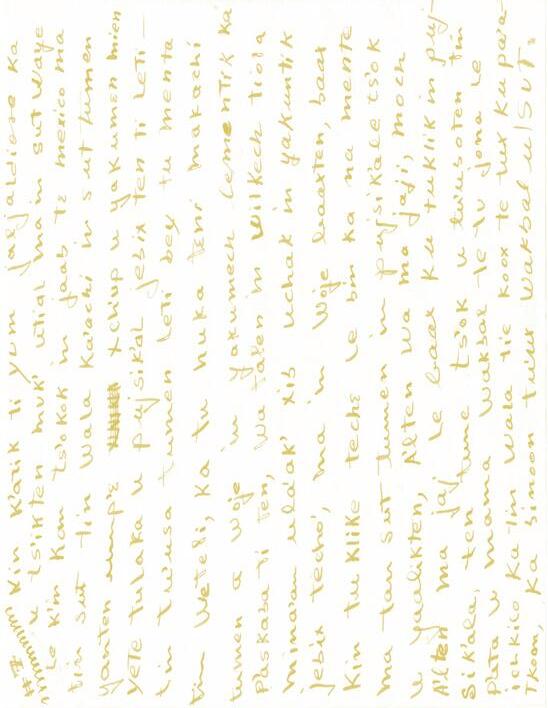 #1 Kin K'atik ti yum jaajaldiose ka
u tsikten muk' utial ma' in sut waye
Le k'in kan ts'okok in jaab te mexico ma
tin sut tin wala karachi in sut tumen
yanten xch'up u yakumen mien
yete tulaka u pujsik'al jebix ten ti leti
tin tusa tumen leti bey tu menta
tin wetel, ka tu nuka teni makachi
tumen a woje in yakumech lementik ka
paskaba ti ten, wa taken in wilkech tiola
mina'an ula'ak' xib uchak in yakuntik
jebix techo', ma in woje baaxten, baax
kin tuklike teche le bin ka na mente
ma tan sut tumen in pujsikale ts'ok
u yaalikten, Alten wa ma jaji, moch
Alten ma jaj le baax ku tuklik in puj-
sik'ala, ten tune ts'ok u tusoten tin
u mama wakbal le tu jona le
ichkilo ka tin wala tie koox te tux kupa'a-
ka binoon tuux wakbal u SUT.